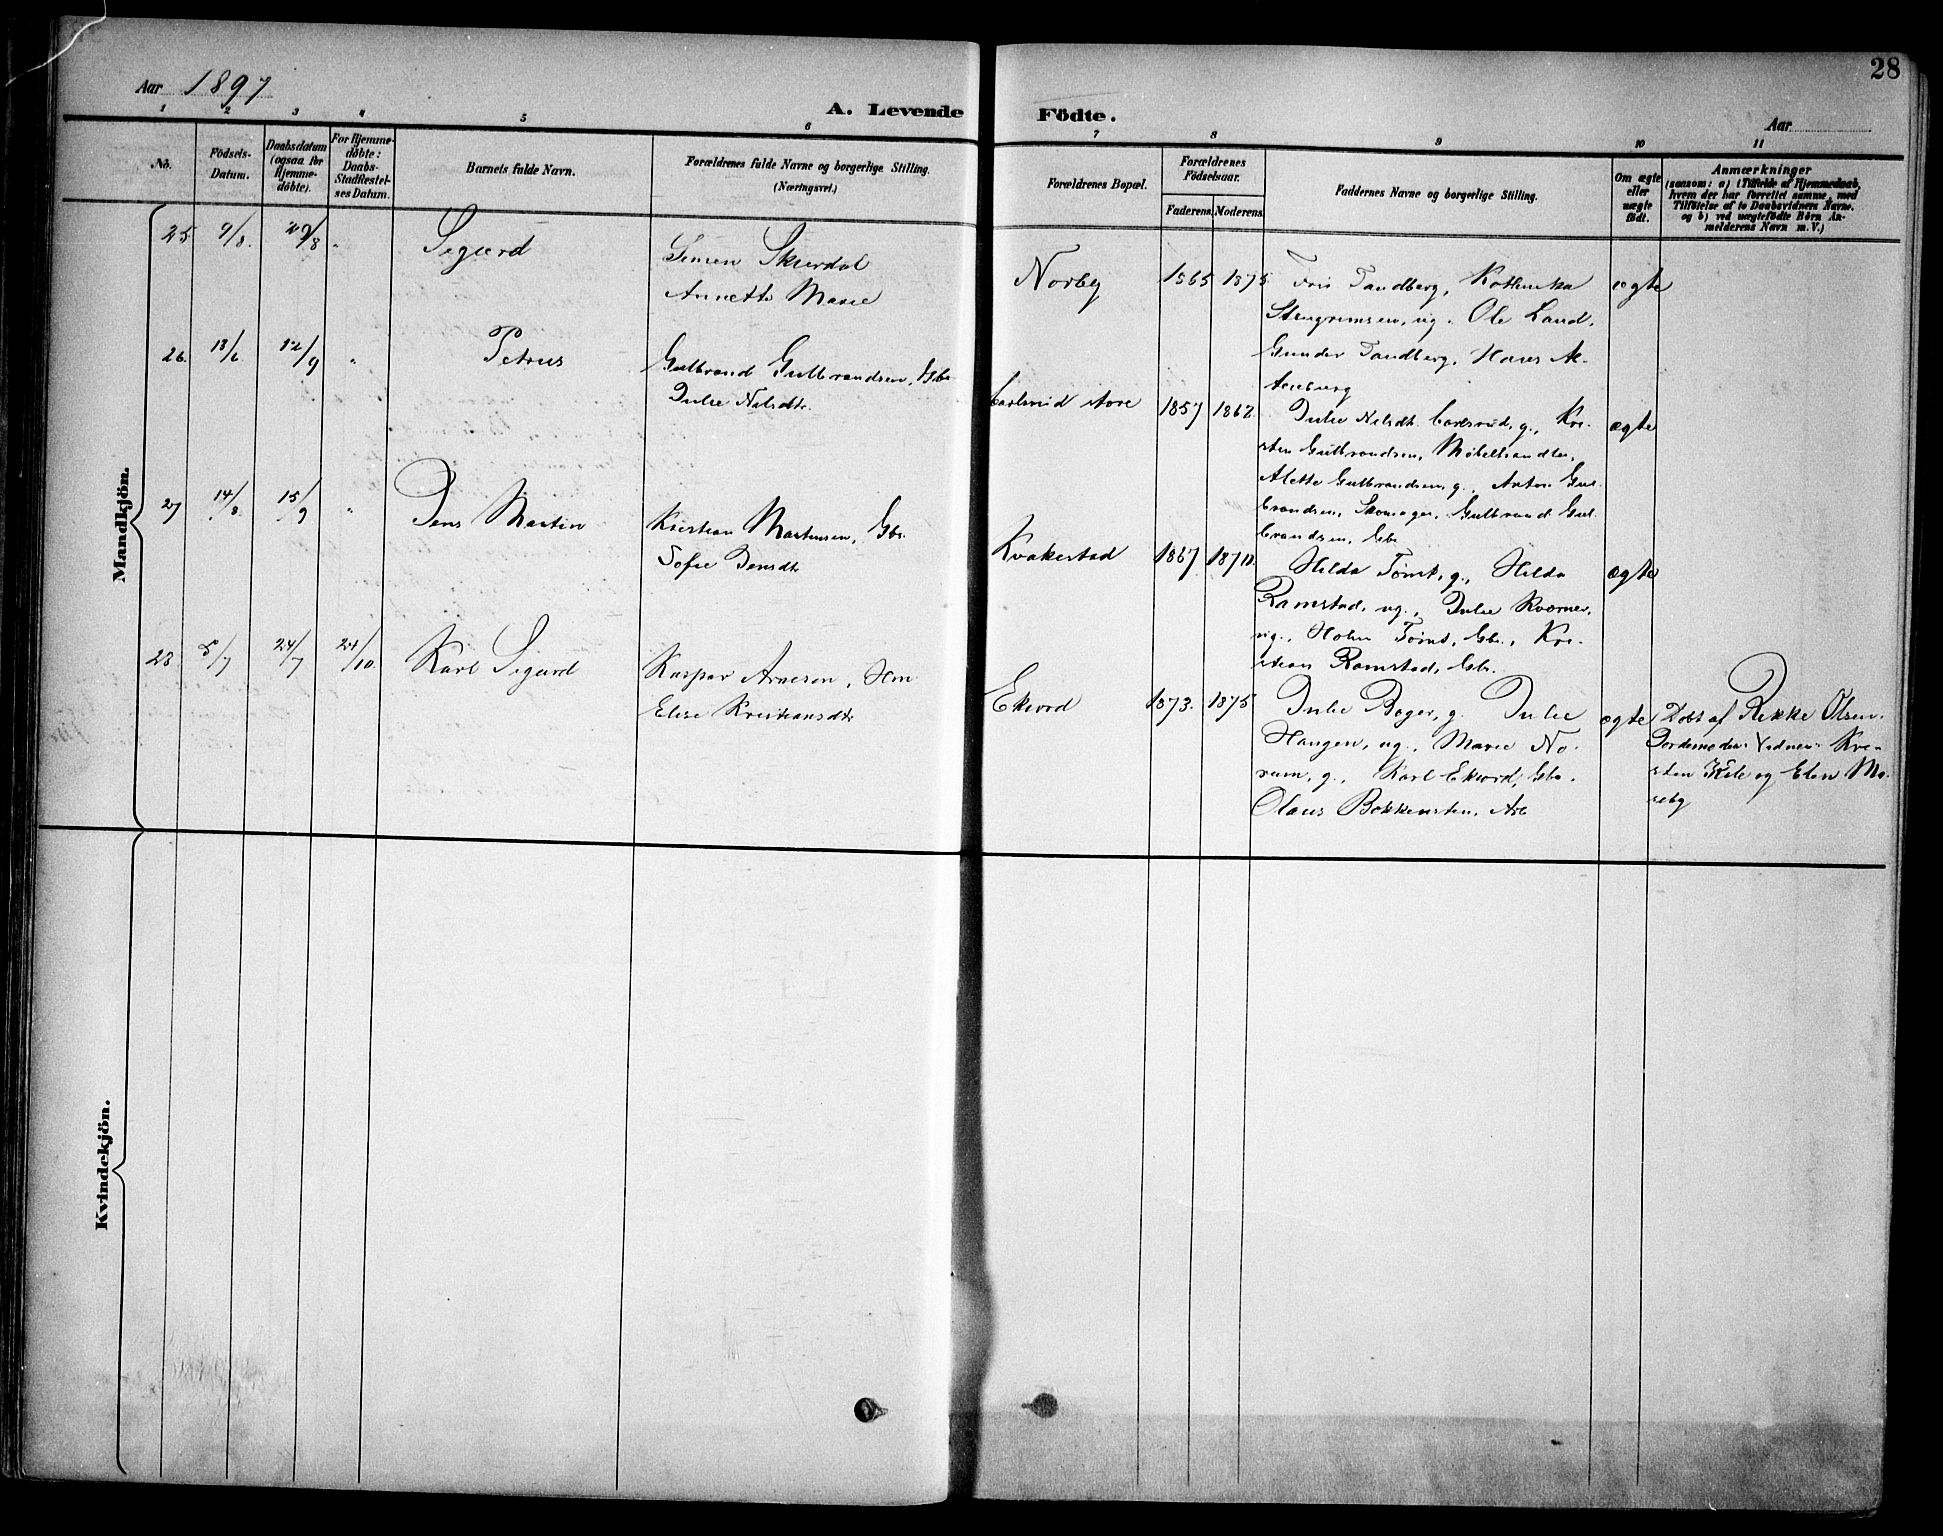 28
Aar 1897
A. Levende Födte.
Aar
1 2 3 4 5 6 7 8 9 10 11
No.
Födsels-
Datum.
Daabsdatum
(ogsaa for
Hjemme-
döbte).
For Hjemme-
döbte:
Daabs-
Stadfæstel-
ses Datum.
Barnets fulde Navn.
Forældrenes fulde Navne og borgerlige Stilling.
(Næringsvei.)
Forældrenes Bopæl.
Forældrenes
Födselsaar.
Faderens. Moderens.
Faddernes Navne og borgerlige Stilling.
Om ægte
eller
uægte
födt.
Anmærkninger
(saasom: a) i Tilfælde af Hjemmedaab,
hvem der har forrettet samme, med
Tilföielse af to Daabsvidners Navne,
og b) ved uægtefödte Börn An-
melderens Navn m. V.)
Mandkjön.
25. 9/8. 29/8 " Sigurd
Simen Skurdal
Annette Marie
Norby 1865 1875
Tandberg, Kathinka
Stengrimsen, ug. Ole Land,
Gunder Tandberg, Hans
ægte
26. 13/6 12/9 " Petrus
Gulbrand Gulbrandsen, Gbr.
Julie Nilsdtr.
Carlsrud store 1857 1862.
Julie Nilsdt. Carlsrud, g., Kri-
sten Gulbrandsen, Möbelhandler,
Alette Gulbrandsen, g., Anton Gul-
brandsen, Skomager, Gulbrand Gul-
brandsen, Gbr.
ægte
27 14/8 15/9 " Jens Martin
Kristian Martinsen, Gbr.
Sofie Jensdtr.
Kvakestad 1867
Hilda Tømt, g., Hilda
Ramstad, ug., Julie Kværner,
ug., Holm Tømt, Gbr., Kri-
stian Ramstad, Gbr.
ægte
28. 5/7 24/7 24/10. Karl Sigurd
Kaspar Arnesen, Hm
Elise Kristiansdtr
Ekvord 1873. 1875
Julie Bager, g. Julie
Haugen, ug., Marie No-
rum, g., Karl Ekvord, Gbr.
Olaus Bakkensten, Arb
ægte
Døbt af Rikke Olsen,
Jordemoder. Vidner: Kri-
sten Kile og Elen Mo-
seby
Kvindekjön.